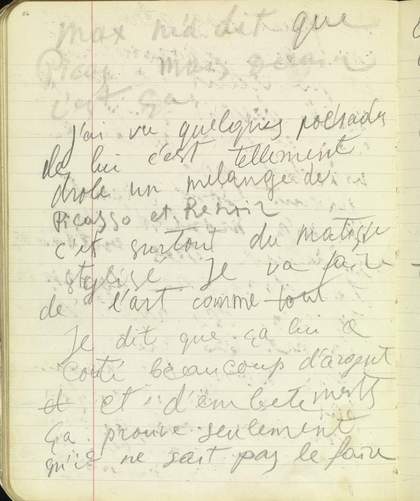 Max m'a dit que
Picas Mais
c'est ça
J'ai vu quelques
de lui c'est tellement
drole un mélange de
Picasso et Renoir
c'est surtout du Matisse
stylisé Je va faire
de l'art comme tout
Je dit que ça lui a
couté beaucoup d'argent
et et d'embetements
ça prouve seulement
qu'il ne sait pas le faire